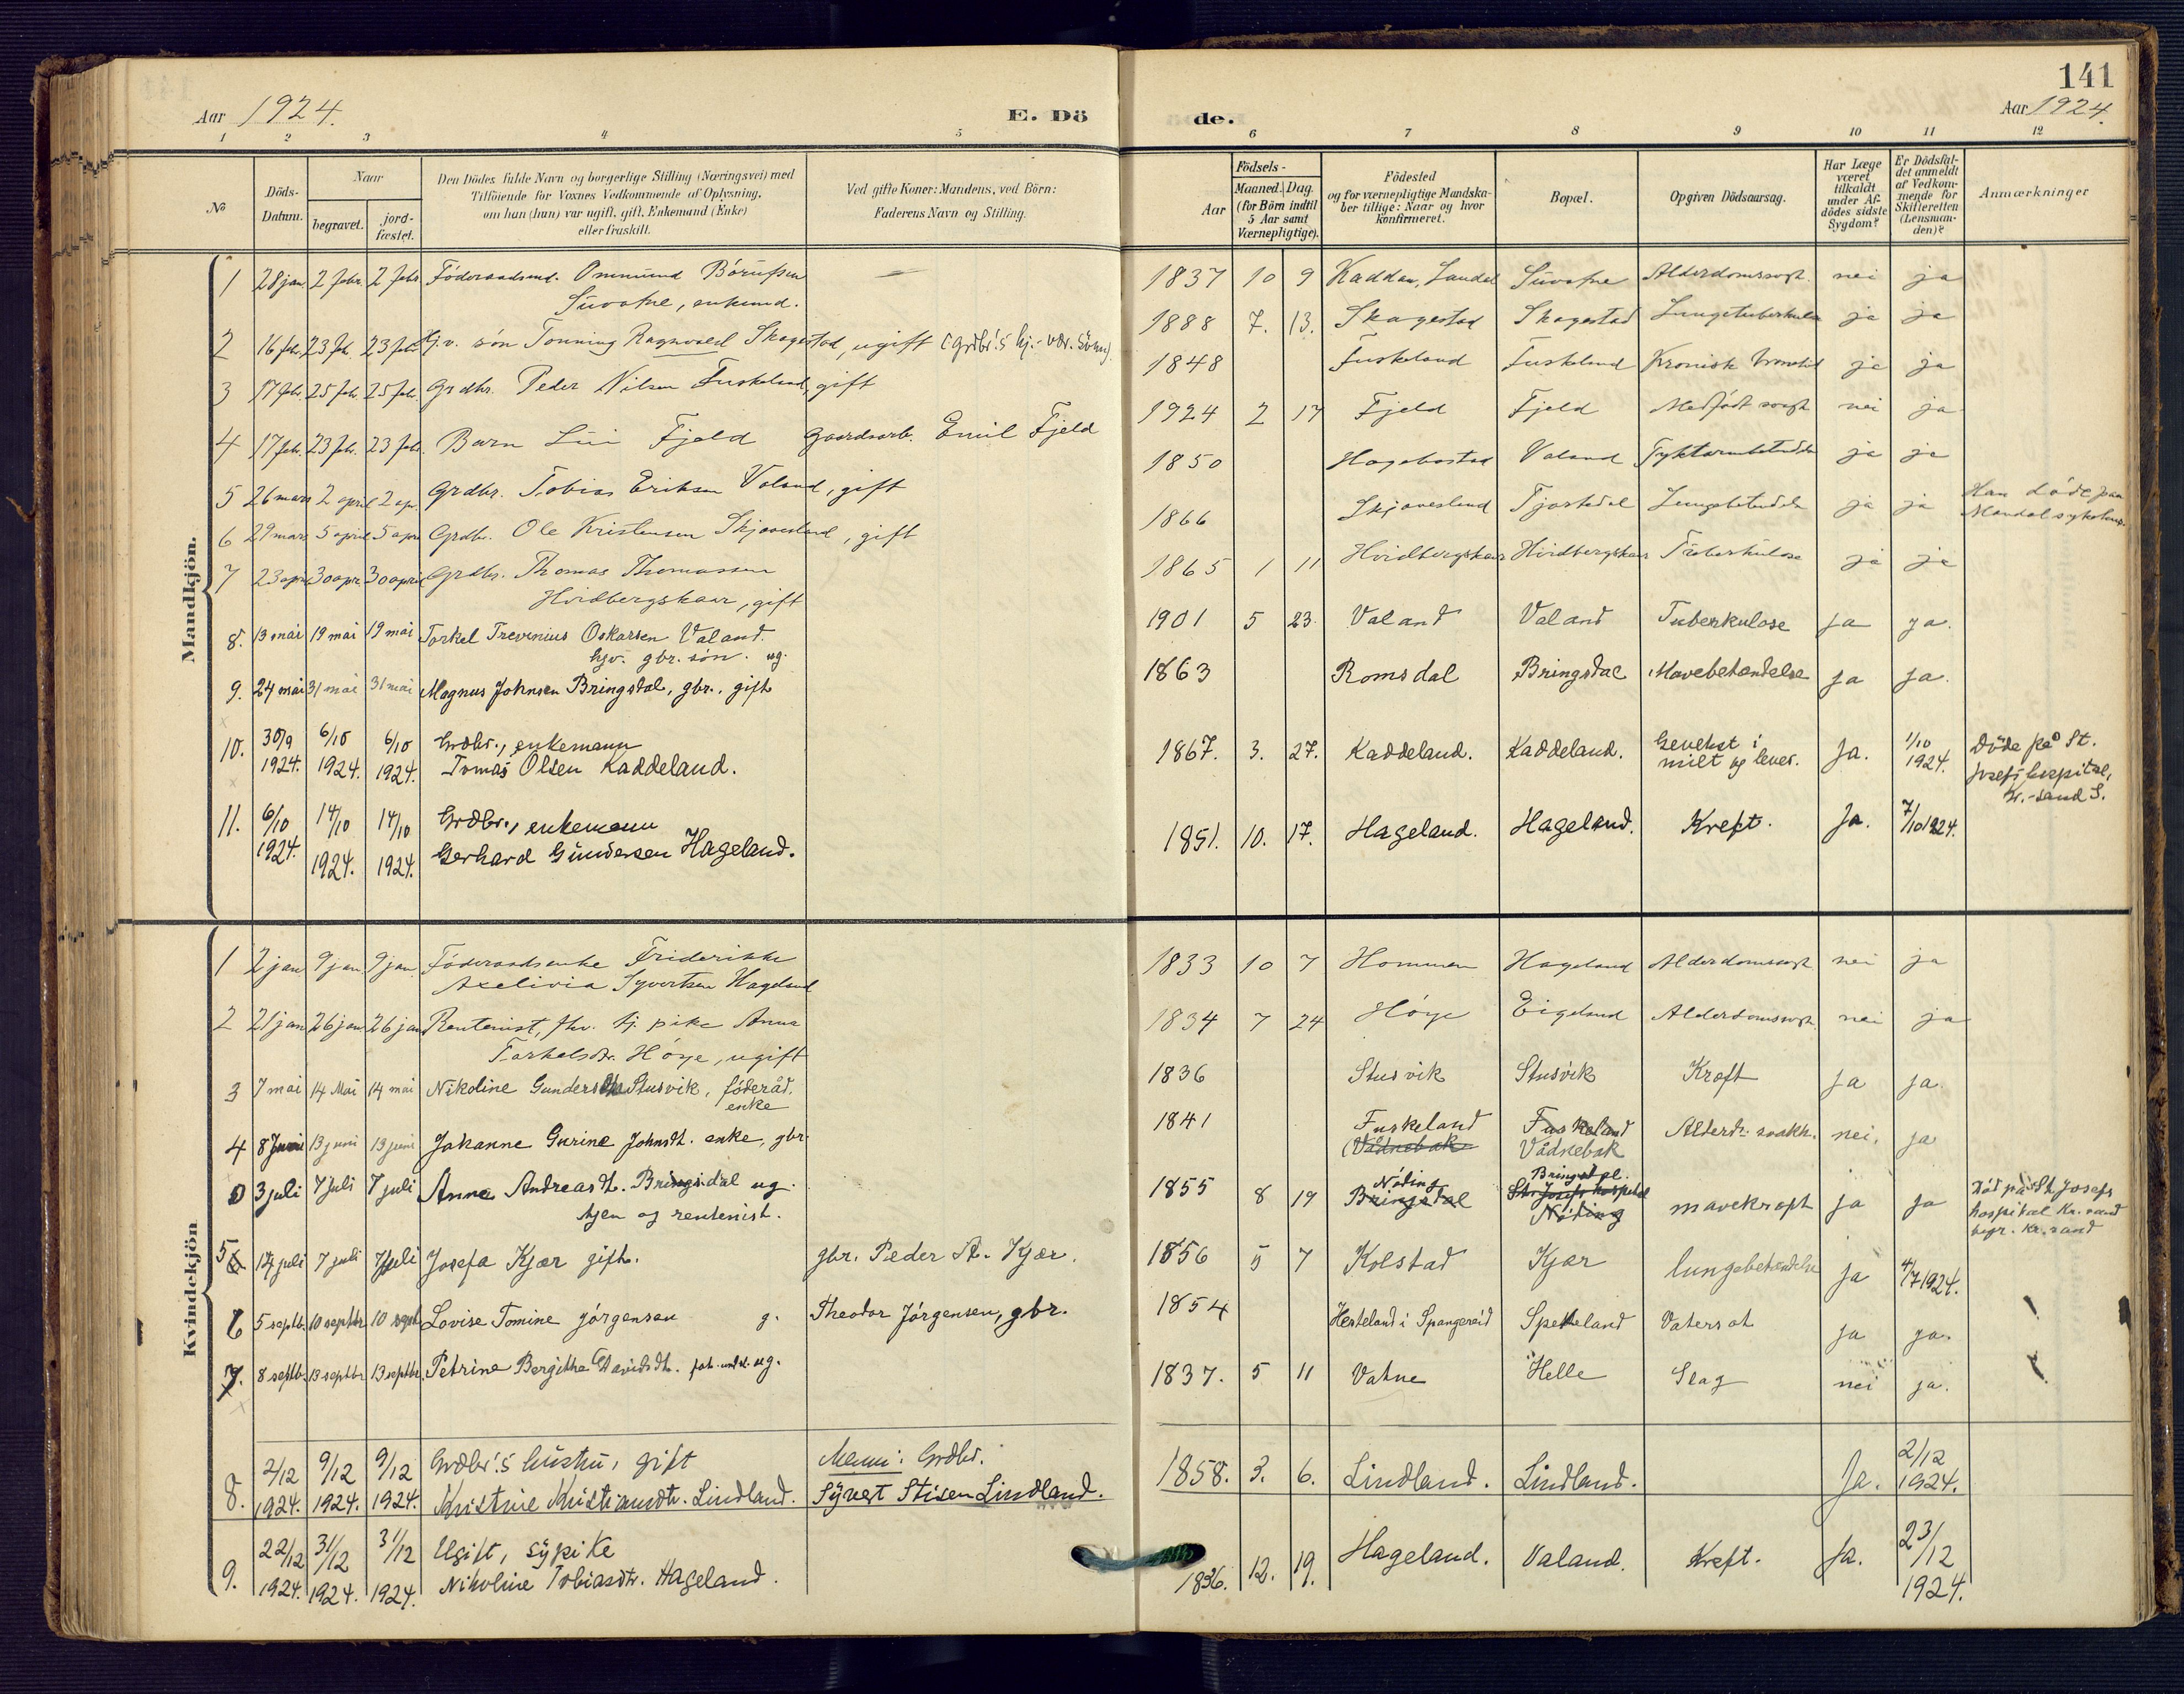 141
Aar 1924.
E. Dö
de.
Aar 1924.
1 2 3 4 5 6 7 8 9 10 11 12
№
Döds-
Datum.
Naar
begravet.
jord-
fæstet.
Den Dödes fulde Navn og borgerlige Stilling (Næringsvei) med
Tilföiende for Voxnes Vedkommende af Oplysning,
om han (hun) var ugift, gift, Enkemand (Enke)
eller fraskilt.
Ved gifte Koner: Mandens, ved Börn:
Faderens Navn og Stilling.
Aar
Födsels-
Maaned. Dag.
(for Börn indtil
5 Aar samt
Værnepligtige).
Födested
og for værnepligtige Mandska-
ber tillige: Naar og hvor
konfirmeret.
Bopæl.
Opgiven Dödsaarsag.
Har Læge
været
tilkaldt
under Af-
dödes sidste
Sygdom?
Er Dödsfal-
det anmeldt
af Vedkom-
mende for
Skifteretten
(Lensman-
den)?
Anmærkninger
Mandkjön.
1 28 jan. 2 febr. 2 febr. Föderaadsmd. Ommund
enkemd. 1837 10 9 nei ja
2 16 feb. 23 feb. 23 febr. søn Tønning Ragnvald Skagestad, ugift 1888 7. 13. Skagestad Skagestad ja ja
3 17 febr. 25 feb. 25 feb. Grdbr. Peder Nilsen Fuskeland, gift 1848 Fuskeland Fuskeland Kronisk ja ja
4 17 feb. 23 feb. 23 feb. Barn Fjeld Gaardsarb. Emil Fjeld 1924 2 17 Fjeld Fjeld Medfødt nei ja
5 26 mars 2 april 2 apr. Grdbr. Tobias Eriksen Valand, gift 1850 Valand ja ja
6 29 mars 5 april 5 apr. Grdbr. Ole Kristensen Skjævesland, gift 1866 Skjævesland ja ja Han døde paa
Mandal sykehus
7 23 april 30 apr. 30 april Grdbr. Thomas Thomassen
Hvidbergskaar, gift 1865 1 11 Hvidbergskaar Hvidbergskaar Tuberkulose ja ja
8. 13 mai 19 mai 19 mai Torkel Trevinius Oskarsen Valand.
hjv. gbr. søn. ug. 1901 5 23. Valand Valand Tuberkulose ja ja.
9. 24 mai 31 mai 31 mai Magnus Johnsen Bringsdal, gbr., gift 1863 Romsdal Bringsdal Mavebetændelse ja ja.
10. 30/9 1924. 6/10 1924. 6/10 1924. Grdbr., enkemann
Tomas Olsen Kaddeland. 1867. 3. 27. Kaddeland. Kaddeland. i
milt og lever. Ja. 1/10 1924. Døde på St.
Josefs hospital,
Kr.-sand S.
11. 6/10 1924. 14/10 1924. 14/10 1924. Grdbr., enkemann
Gerhard Gundersen Hageland. 1851. 10. 17. Hageland. Hageland. Kreft. Ja. 7/10 1924.
Kvindekjön
1 2 jan 9 jan. 9 jan. Föderaadsenke Friderikke
Axelivia Syvertsen Hageland 1833 10 7 Hommen Hageland nei ja
2 21 jan 26 jan 26 jan Rentenist, pike Anna
Torkelsdtr. Høye, ugift 1834 7 24 Høye Eigeland nei ja
3 7 mai 14 Mai 14 mai Nikoline Gundersdtr Stusvik, føderåd.
enke 1836 Stusvik Stusvik Kræft ja ja.
4 8 Juni 13 juni 13 juni Jakanne Gurine Johnsdt. enke, gbr. 1841 Fuskeland
(Vådnebak Fuskeland
Vådnebak nei. ja
3 juli 7 juli 7 juli Anna Andreasdt. Bringsdal ug.
hjen og rentenist. 1855 8 19 Nøding
Bringsdal Bringsdal.
St. Josefs hospital
Nøding mavekræft ja ja Død på St. Josefs
hospital Kr. sand
begr. Kr. sand
5 juli 7 juli 7 juli Josefa Kjær gift. gbr. Peder A. Kjær. 1856 5 7 Kolstad Kjær lungebetændelse ja 4/7 1924.
6 5 septb. 10 septbr 10 sept. Lovise Tomine Jørgensen g. Theodor Jørgensen, gbr. 1854 Hesteland i Spangereid Spetteland Vatersot ja ja.
7. 8 septb. 13 septbr 13 septbr. Petrine Bergitha Davidsdt. ug. 1837. 5 11 Vatne Helle Slag nei ja.
8. 2/12 1924. 9/12 1924. 9/12 1924. Grdbr.'s hustru, gift
Kristine Kristiansdtr. Lindland. Mann: Grdbr.
Syvert Stisen Lindland. 1858. 3. 6. Lindland. Lindland. Ja. 2/12 1924.
9. 22/12 1924. 31/12 1924. 31/12 1924. Ugift, sypike
Nikoline Tobiasdtr. Hageland. 1836. 12. 19. Hageland. Valand. Kreft. Ja. 23/12 1924.